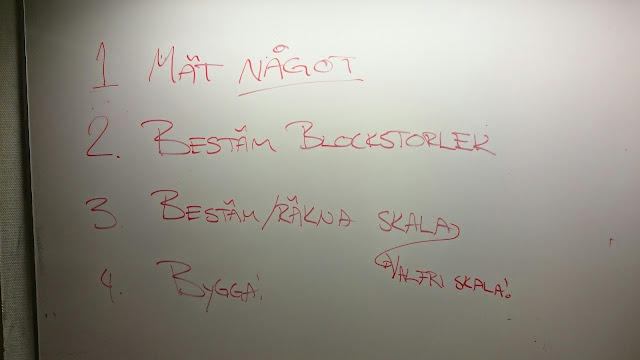 1 MÄT NÅGOT
2. BESTÄM BLOCKSTORLEK
3 BESTÄM/RÄKNA SKALA
VALFRI SKALA!
4. BYGGA!